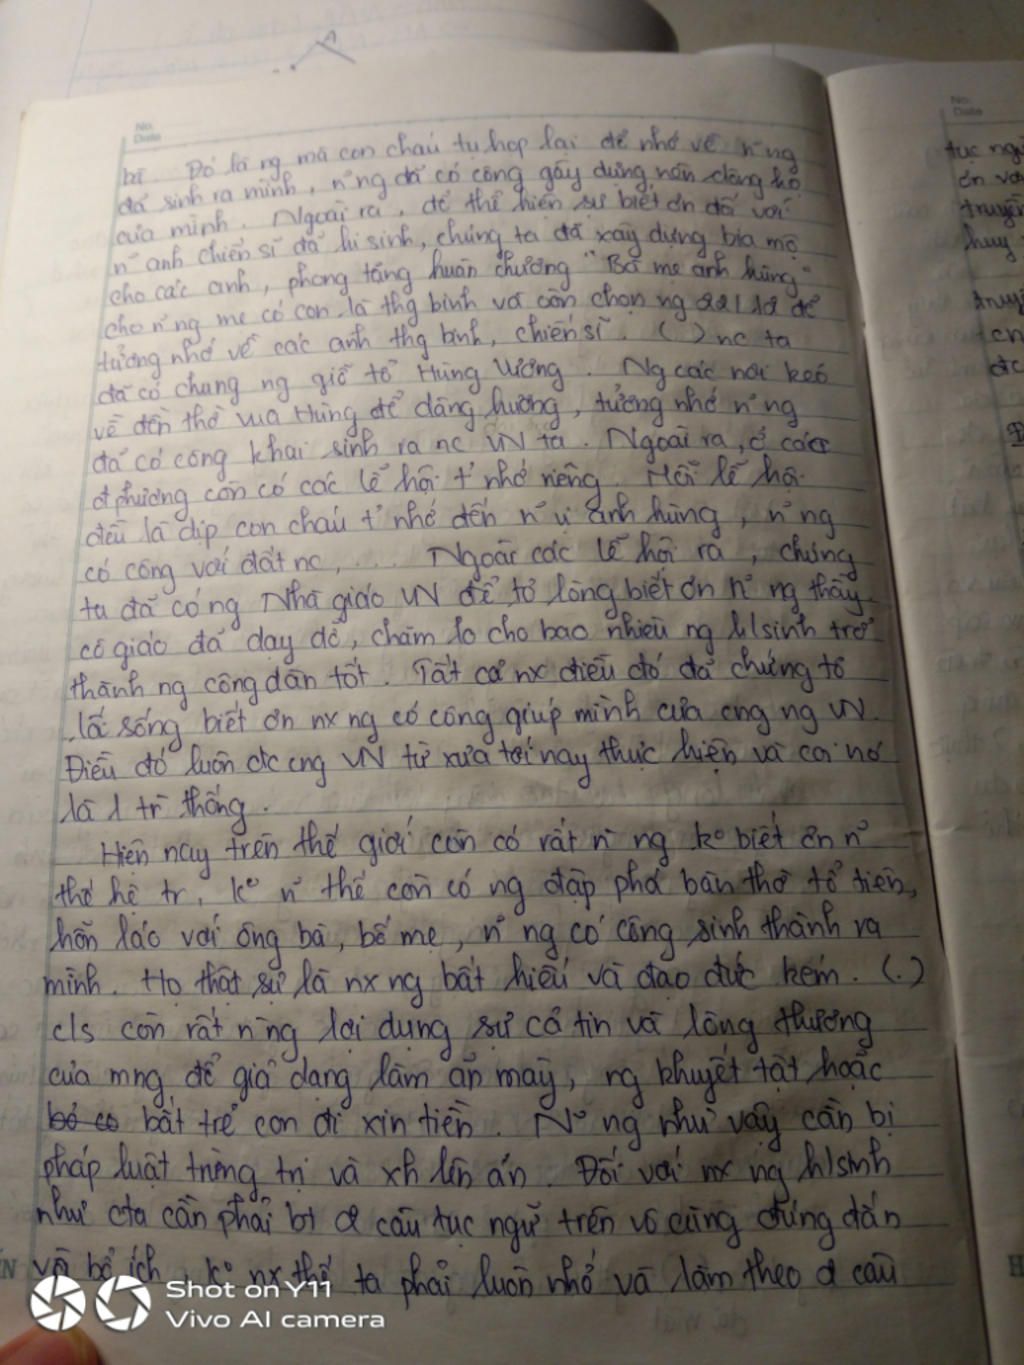 No.
Date
bĩ. Đó là ng mà con cháu tụ họp lại để nhớ về n~ ng
đã sinh ra mình, n~ ng đã có công gây dựng nên dòng họ
của mình. Ngoài ra, để thể hiện sự biết ơn đối với
n~ anh chiến sĩ đã hi sinh, chúng ta đã xây dựng bia mộ
cho các anh, phong tặng huân chương "Bà mẹ anh hùng"
cho n~ ng mẹ có con là thg binh và còn chọn ng 22/12 để
tưởng nhớ về các anh thg binh, chiến sĩ. ( ) nc ta
đã có chung ng giỗ tổ Hùng Vương. Ng các nơi kéo
về đền thờ vua Hùng để dâng hương, tưởng nhớ n~ ng
đã có công khai sinh ra nc VN ta. Ngoài ra, ở các
đ phương còn có các lễ hội t' nhớ riêng. Mỗi lễ hội
đều là dịp con cháu t' nhớ đến n~ vị anh hùng, n~ ng
có công với đất nc, ... Ngoài các lễ hội ra, chúng
ta đã có ng Nhà giáo VN để tỏ lòng biết ơn n~ ng thầy
cô giáo đã dạy dỗ, chăm lo cho bao nhiêu ng h/sinh trở
thành ng công dân tốt. Tất cả nx điều đó đã chứng tỏ
lối sống biết ơn nx ng có công giúp mình của cng ng VN.
Điều đó luôn đc cng VN từ xưa tới nay thực hiện và coi nó
là 1 tr thống.
Hiện nay trên thế giới còn có rất n` ng k° biết ơn n~
thế hệ tr, k° n~ thế còn có ng đập phá bàn thờ tổ tiên,
hỗn láo với ông bà, bố mẹ, n~ ng có công sinh thành ra
mình. Họ thật sự là nx ng bất hiếu và đạo đức kém. (.)
c/s còn rất n` ng lợi dụng sự cả tin và lòng thương
của mng để giả dạng làm ăn mày, ng khuyết tật hoặc
bắt trẻ con đi xin tiền. N~ ng như vậy cần bị
pháp luật trừng trị và xh lên án. Đối với nx ng h/sinh
như cta cần phải bt câu tục ngữ trên vô cùng đúng đắn
và bổ ích, k° nx thế ta phải luôn nhớ và làm theo câu
Shot on Y11
Vivo AI camera
No.
Date
tục ng
ơn vo
truyền
huy
truy
đc